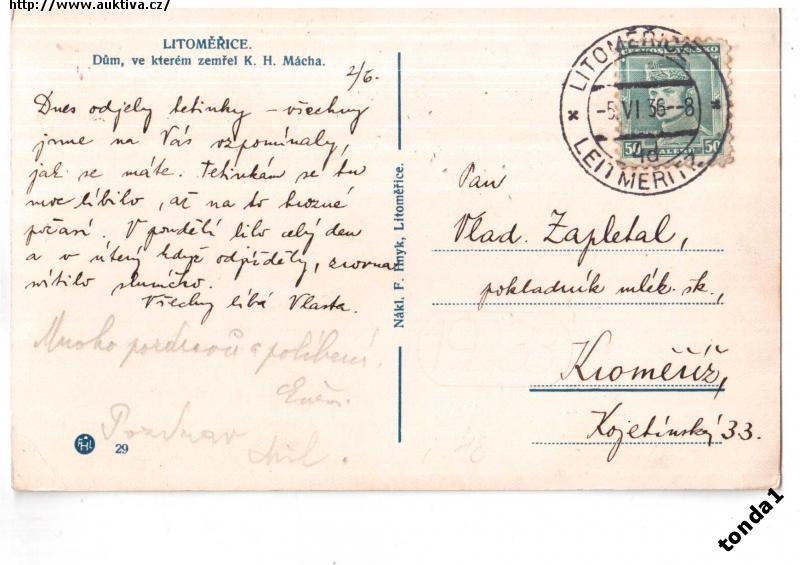 http://www.auktiva.cz/
LITOMĚŘICE.
Dům, ve kterém zemřel K. H. Mácha.
2/6.
Dnes odjely tetinky – všechny
jsme na Vás vzpomínaly,
jak se máte. Tetinkám se tu
moc líbilo, až na to hrozné
počasí. V pondělí lilo celý den
a v úterý když odjížděly, zrovna
svítilo slunéčko.
Všechny líbá Vlasta.
Mnoho pozdravů a políbení.
Pozdrav
29
Nákl. F. Hnyk, Litoměřice.
LITOMĚŘICE
-5.VI.36--8
LEITMERITZ
ČESKOSLOVENSKO
50 HALÉŘŮ 50
Pan
Vlad. Zapletal,
pokladník mlék. sk.,
Kroměříž,
Kojetínská 33.
tonda1